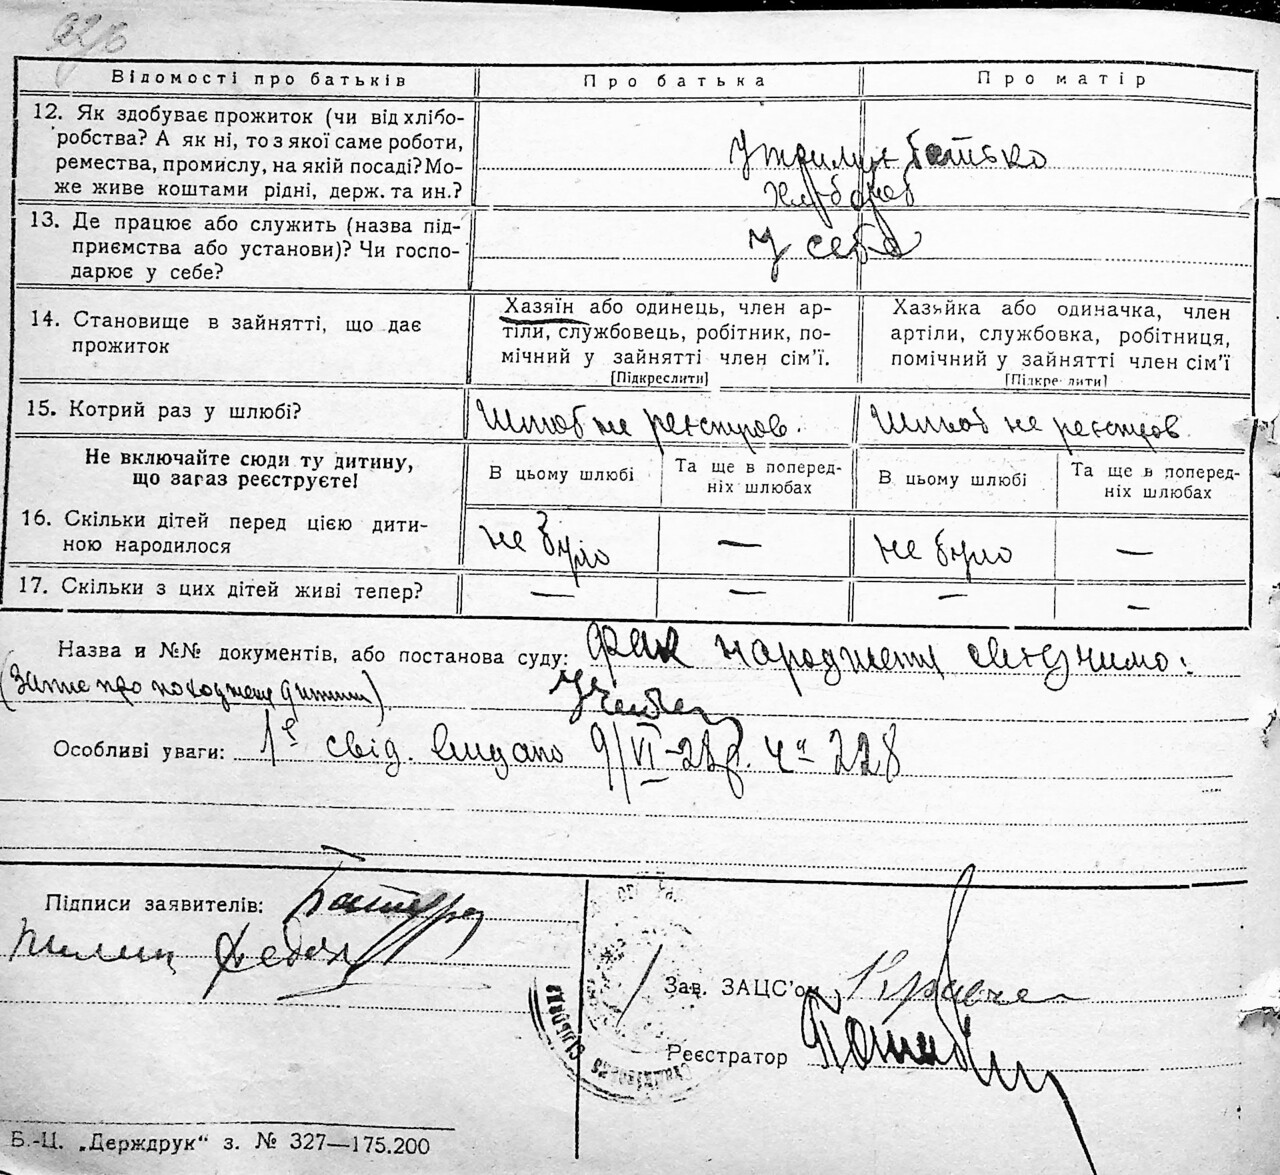 Відомості про батьків
Про батька
Про матір
12. Як здобуває прожиток (чи від хлібо-
робства? А як ні, то з якої саме роботи,
ремества, промислу, на якій посаді? Мо-
же живе коштами рідні, держ. та ин.?
батько
хлібороб
13. Де працює або служить (назва під-
приємства або установи)? Чи госпо-
дарює у себе?
у себе
14. Становище в зайнятті, що дає
прожиток
Хазяїн або одинець, член ар-
тіли, службовець, робітник, по-
мічний у зайнятті член сім'ї.
[Підкреслити]
Хазяйка або одиначка, член
артіли, службовка, робітниця,
помічний у зайнятті член сім'ї
[Підкре лити]
15. Котрий раз у шлюбі?
Шлюб не реєстров.
Шлюб не реєстров
Не включайте сюди ту дитину,
що загаз реєструєте!
В цьому шлюбі
Та ще в поперед-
ніх шлюбах
В цьому шлюбі
Та ще в поперед-
ніх шлюбах
16. Скільки дітей перед цією дити-
ною народилося
не було
—
не було
—
17. Скільки з цих дітей живі тепер?
—
—
—
—
Назва и №№ документів, або постанова суду:
Особливі уваги: 1е свід. видано 9/VI-28р. ча 228
Підписи заявителів:
Зав. ЗАЦС'ом
Реєстратор
Б.-Ц. „Держдрук“ з. № 327—175.200